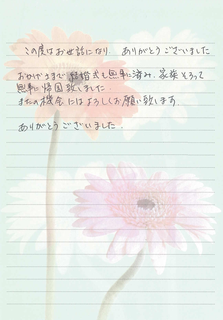 この度はお世話になり、ありがとうございました
おかげさまで 結婚式も無事に済み、家族そろって
無事に帰国致しました。
またの機会にはよろしくお願い致します
ありがとうございました。